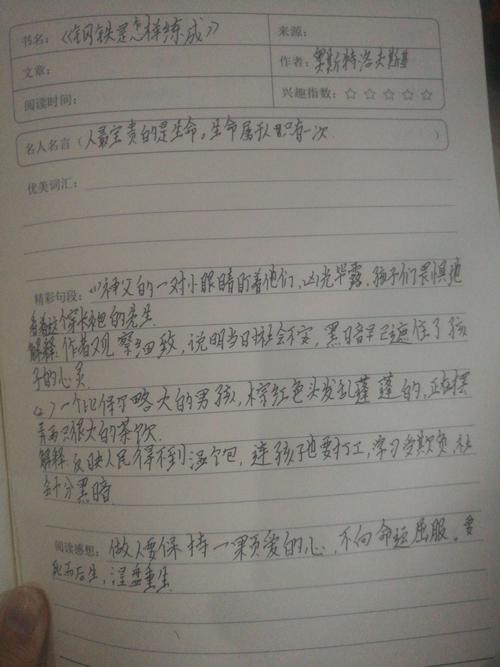 书名：《钢铁是怎样练成》 来源：
文章： 作者：奥斯特洛夫斯基
阅读时间： 兴趣指数：☆ ☆ ☆ ☆ ☆
名人名言（人最宝贵的是生命。生命属于人只有一次 ）
优美词汇：
精彩句段：(1)神父的一对小眼睛盯着他们，凶光毕露，孩子们畏惧地
看着这个穿长袍的先生
解释：作者观察细致，说明当日社会不安，黑暗早已遮住了孩
子的心灵
(2)一个比保尔略大的男孩，棕红色头发乱蓬蓬的，正在摆
弄两只很大的茶饮
解释 反映人民得不到温饱，连孩子也要打工，
会十分黑暗
阅读感想：做人要保持一颗爱的心，不向命运屈服，要
死而后生，涅盘重生